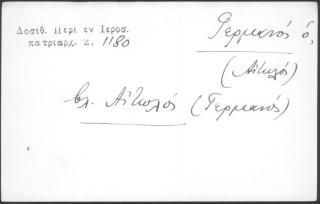 Δοσιθ. Περι εν Ιεροσ.
πατριαρχ. σ. 1180
Γερμανός ὁ,
(Αἰτωλός)
βλ. Αἰτωλός (Γερμανός)